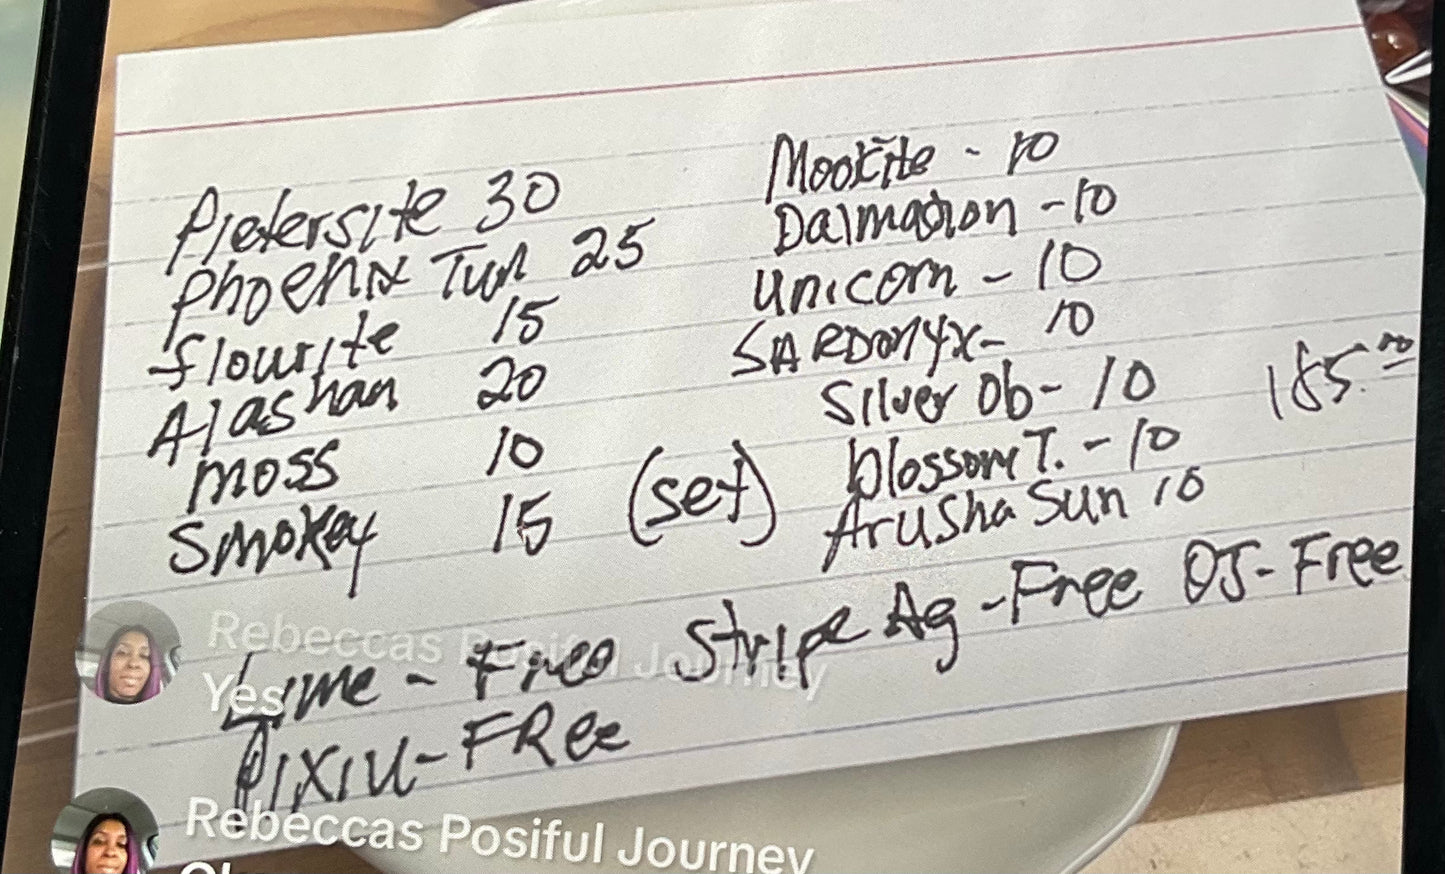 Pietersite 30
Phoenix Tur 25
flourite 15
Alashan 20
moss 10
Smokey 15 (set)
Mookite - 10
Dalmation - 10
Unicorn - 10
SARDONYX - 10
Silver Ob - 10
185.00
blossom T. - 10
Arusha Sun 10
Lime - Free Stripe Ag - Free OJ - Free
PIXIU - FRee
Rebeccas Posiful Journey
Yes
Rebeccas Posiful Journey